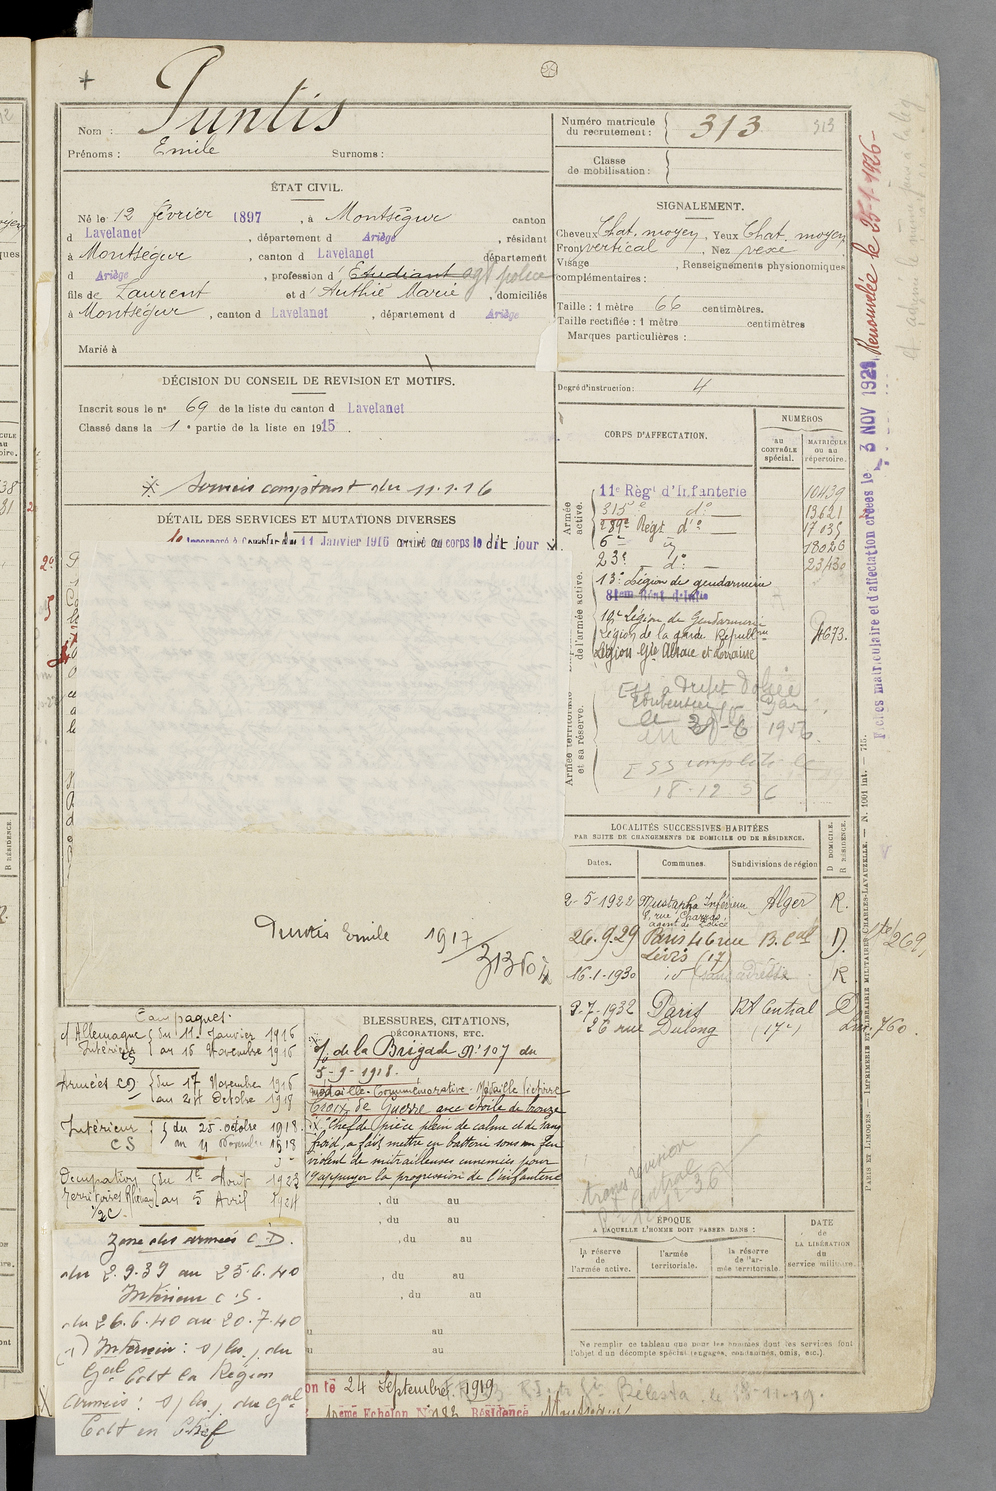 Nom : Puntis
Prénoms : Emile Surnoms :
Numéro matricule du recrutement : 313 313
Classe de mobilisation :
ÉTAT CIVIL.
Né le 12 février 1897, à Montségur canton
d Lavelanet, département d Ariège, résidant
à Montségur, canton d Lavelanet département
d Ariège, profession d' Etudiant agt police
fils de Laurent et d' Authié Marie, domiciliés
à Montségur, canton d Lavelanet, département d Ariège
Marié à
SIGNALEMENT.
Cheveux Chat. moyen, Yeux Chat. moyen
Front vertical, Nez vexe
Visage , Renseignements physionomiques
complémentaires :
Taille : 1 mètre 66 centimètres.
Taille rectifiée : 1 mètre centimètres
Marques particulières :
Degré d'instruction : 4
DÉCISION DU CONSEIL DE REVISION ET MOTIFS.
Inscrit sous le n° 69 de la liste du canton d Lavelanet
Classé dans la 1e partie de la liste en 1915.
Services comptant du 11.1.16
DÉTAIL DES SERVICES ET MUTATIONS DIVERSES
Incorporé à compter du 11 Janvier 1916 arrivé au corps le dit jour
CORPS D'AFFECTATION.
NUMÉROS
au CONTRÔLE spécial.
MATRICULE ou au répertoire.
Armée active.
11e Régt d'Infanterie 10439
315e do 13621
289e Régt do 17035
6e id 18026
23e do 23430
de l'armée active.
13e Légion de gendarmerie
81eme Régt d'Inftie
19e Légion de Gendarmerie
Légion de la garde Républne 4673.
Légion Gle Alsace et Lorraine
Armée territoriale et sa réserve.
1956.
ESS complété le
18-12-56
LOCALITÉS SUCCESSIVES HABITÉES
PAR SUITE DE CHANGEMENTS DE DOMICILE OU DE RÉSIDENCE.
Dates. Communes. Subdivisions de région D DOMICILE. R RÉSIDENCE.
2-5-1922 Mustapha Inférieur Alger R.
agent de Police
26.9.29 Paris 46 rue B. Cal D.
Lévis (17)
16-1-1930 id R
9-7-1932 Paris RA Central D
26 rue Dulong (17e)
Puntis Emile 1917
313
Campagnes.
c/ Allemagne du 11 Janvier 1916
Intérieur CS au 16 Novembre 1916
Armées CD du 17 Novembre 1916
au 24 Octobre 1918
Intérieur du 25 octobre 1918
CS au 11 Novembre 1918
Occupation du 1er Août 1923
Territoires Rhénans au 5 Avril 1924
1/2C.
Zone des armées C.D.
du 2.9.39 au 25.6.40
Intérieur C.S.
du 26.6.40 au 20.7.40
(1) Intérieur : s/ du
Gal Cdt la Région
Armées : s/ du Gal
Cdt en Chef
BLESSURES, CITATIONS,
DÉCORATIONS, ETC.
de la Brigade N° 107 du
5-9-1918.
Médaille Commémorative. Médaille Victoire
Croix de Guerre avec étoile de bronze
Chef de pièce plein de calme et de sang
froid, a fait mettre en batterie sous un feu
violent de mitrailleuses ennemies pour
appuyer la progression de l'infanterie
, du au
, du au
, du au
, du au
, du au
au
au
ÉPOQUE
A LAQUELLE L'HOMME DOIT PASSER DANS :
la réserve de l'armée active.
l'armée territoriale.
la réserve de l'armée territoriale.
DATE de LA LIBÉRATION du service militaire.
Ne remplir ce tableau que pour les hommes dont les services font
l'objet d'un décompte spécial (engagés, condamnés, omis, etc.).
24 Septembre 1919
Bélesta le 18-11-19.
eme Echelon N° 182 Résidence
Renouvelée le 25-1-1926
Fiches matriculaire et d'affectation créées le 3 NOV 1921
PARIS ET LIMOGES. — IMPRIMERIE ET LIBRAIRIE MILITAIRES CHARLES-LAVAUZELLE. — N. 1001 int. — 715.
269
760